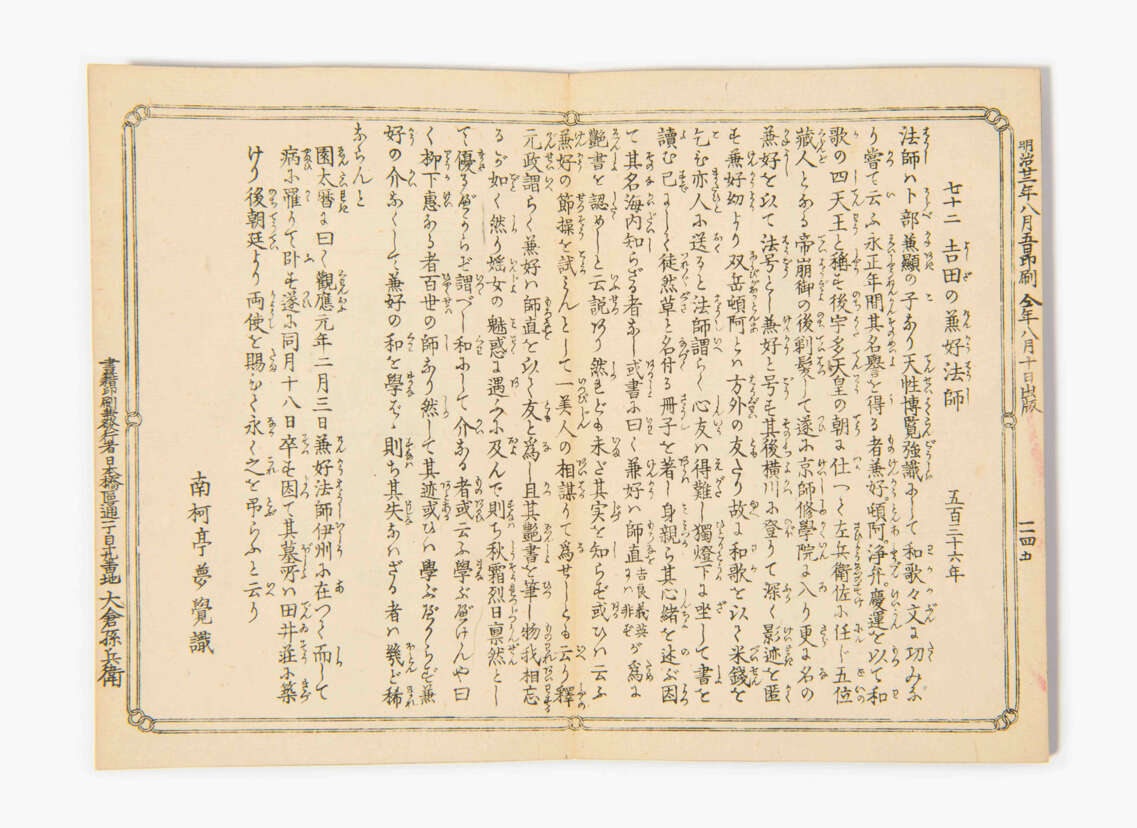 明治廿一年八月五日印刷 仝年八月十日出版
一二四五
七十二 吉田の兼好法師 五百三十六年
法師ハ卜部兼顯の子なり天性博覧強識にして和歌々文に功みな
り嘗て云ふ永正年間其名譽を得る者兼好頓阿浄弁慶運を以て和
歌の四天王と稱す後宇多天皇の朝に仕つへ左兵衛佐に任じ五位
藏人となる帝崩御の後剃髪して遂に京師修學院に入り更に名の
兼好を以て法号とし兼好と号す其後横川に登りて深く影迹を匿
す兼好幼より双岳頓阿とハ方外の友たり故に和歌を以て米錢を
乞ひ亦人に送ると法師謂らく心友ハ得難し獨燈下に坐して書を
讀む已にして徒然草と名付る冊子を著し身親ら其心緒を述ぶ因
て其名海内知らざる者なし或書に曰く兼好ハ師直吉良義英にハ非ずが為に
艶書を認めしと云説あり然れども未だ其実を知らず或ひハ云ふ
兼好の節操を試みんとして一美人の相謀りて為せしとも云り釋
元政謂らく兼好ハ師直を以て友と爲し且其艶書を筆し物我相忘
るゝが如く然り婬女の魅惑に遇ふに及んで則ち秋霜烈日凛然とし
て優るべからず謂つべし和にして介ある者或云ふ學ぶべけんや曰
く柳下惠ある者百世の師なり然して其迹或ひハ學ぶべからず兼
好の介なくして兼好の和を學バゞ則ち其失なハざる者ハ幾ど稀
ならんと
園太暦に曰く觀應元年二月三日兼好法師伊州に在つて而して
病に罹りて卧す遂に同月十八日卒す因て其墓所ハ田井荘に築
けり後朝廷より両使を賜ひて永く之を弔らふと云り
南柯亭夢覺識
書籍印刷兼發行者日本橋區通一丁目十九番地 大倉孫兵衛